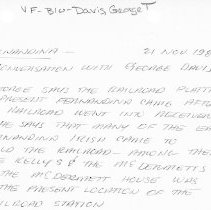 VF-Bio-Davis, George T
NANDINA — 21 NOV 198
CONVERSATION WITH GEORGE DAVIS
GEORGE SAYS THE RAILROAD PLATT
PRESENT FERNANDINA CAME AFTER
RAILROAD WENT INTO RECEIVER
HE SAYS THAT MANY OF THE EA
NANDINA IRISH CAME TO
LD THE RAILROAD - AMONG THE
E KELLYS & THE MCDERMOTTS
THE MCDERMOTT HOUSE WAS
THE PRESENT LOCATION OF THE
ILROAD STATION